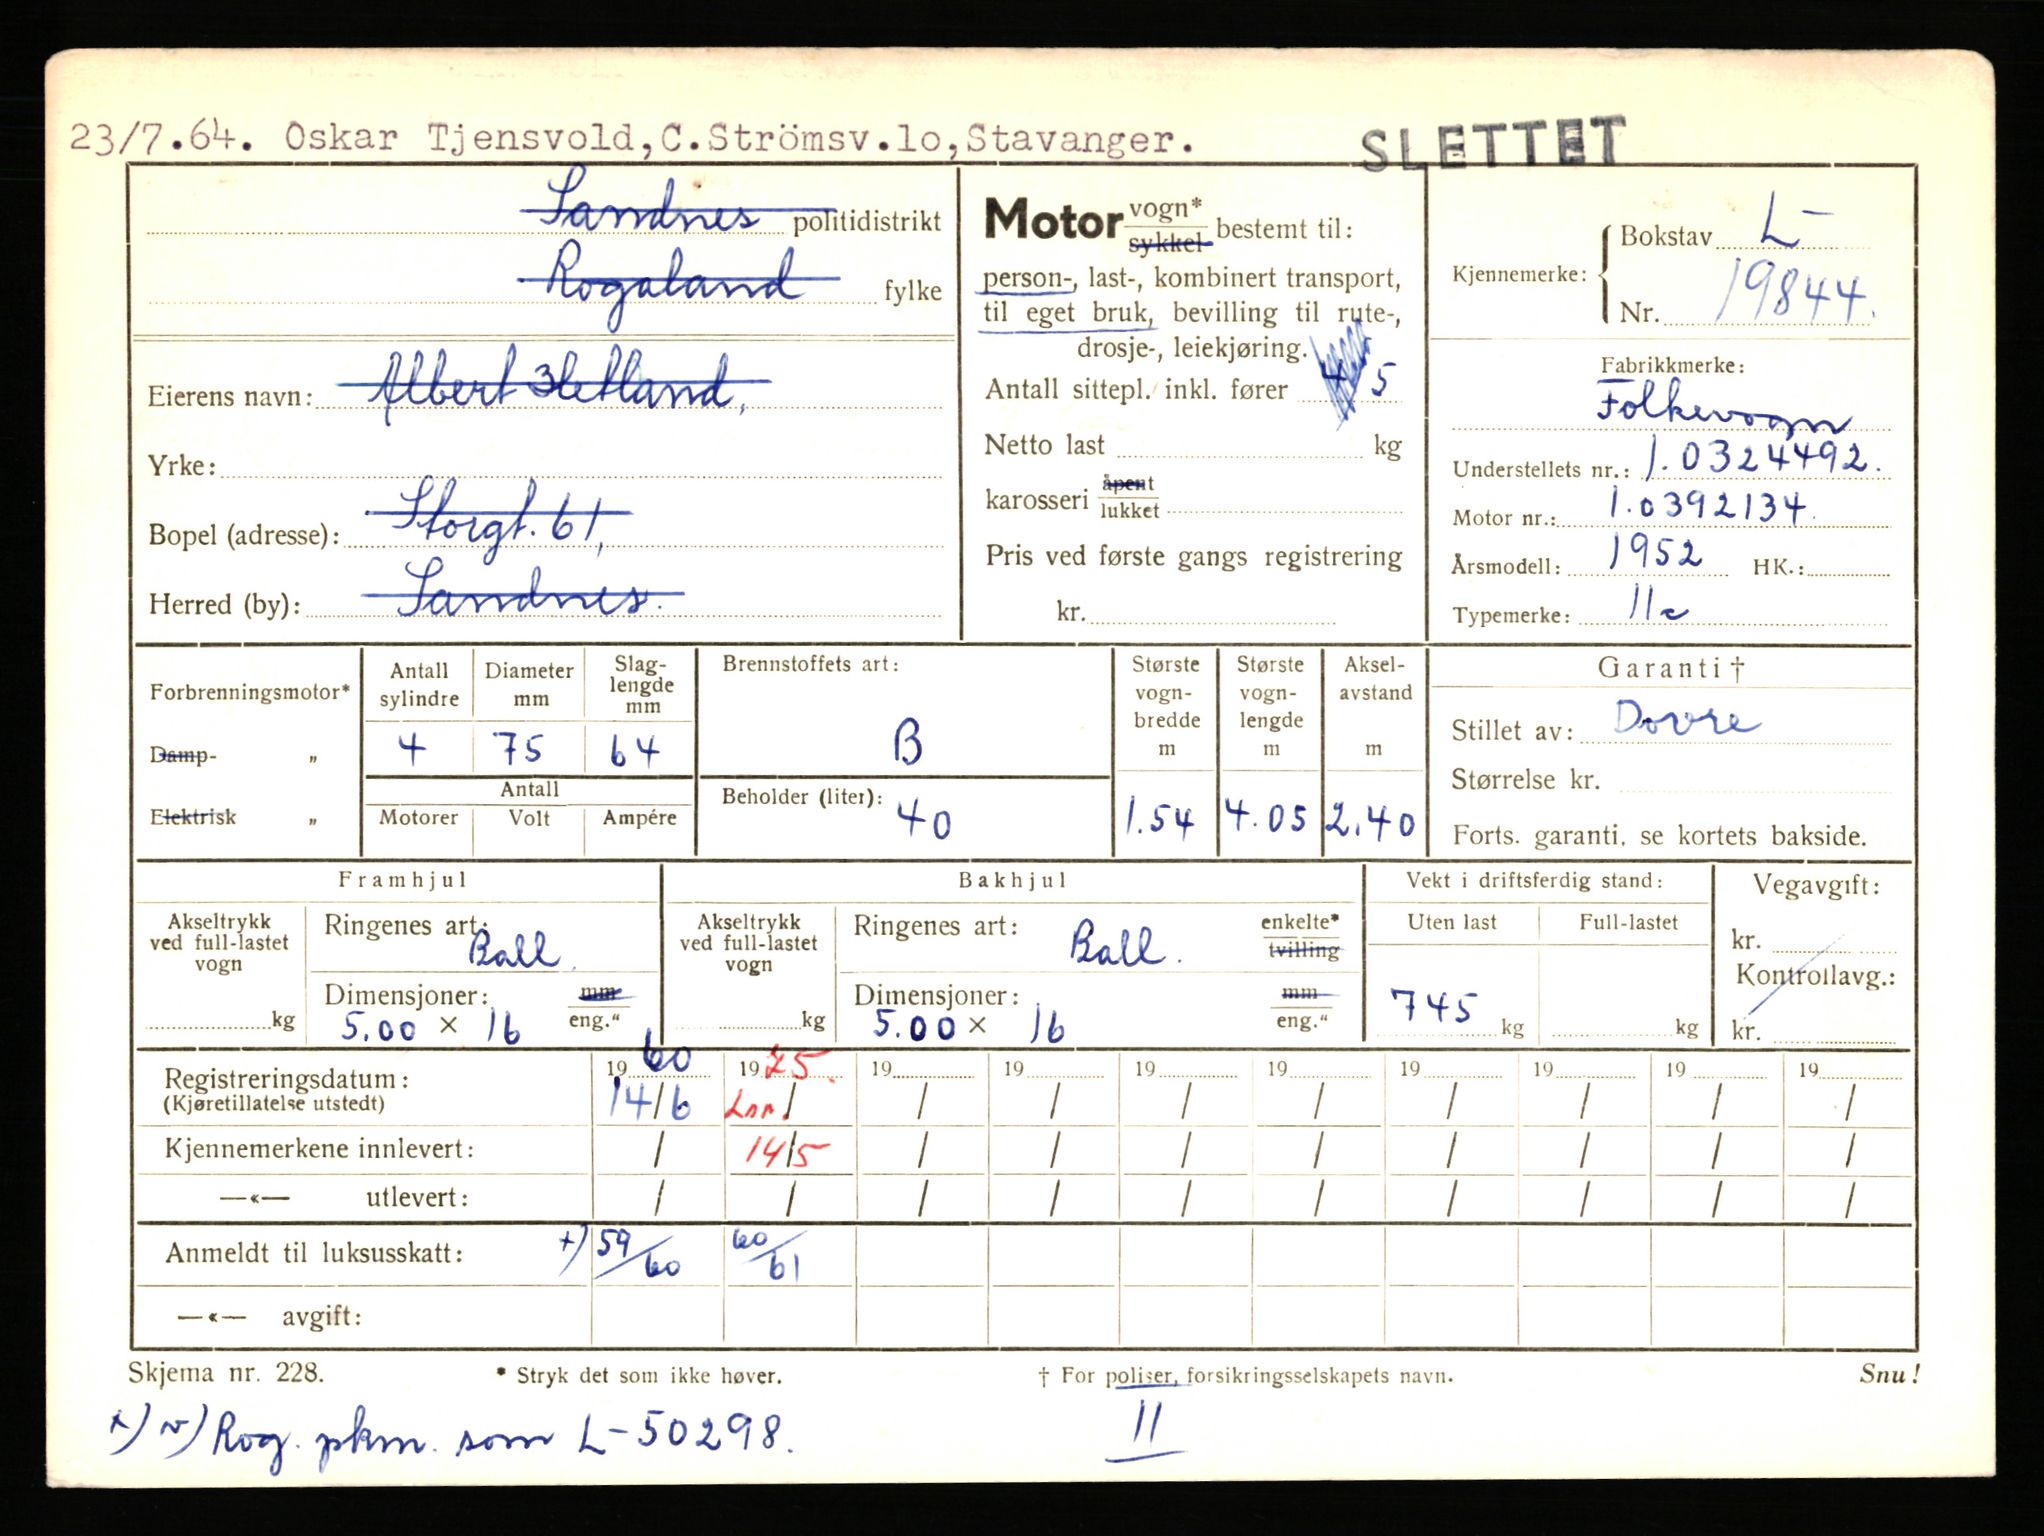 23/7.64. Oskar Tjensvold,C.Strömsv.lo,Stavanger.
SLETTET
Sandnes politidistrikt
Rogaland fylke
Eierens navn: Albert Hetland,
Yrke:
Bopel (adresse): Storgt. 61,
Herred (by): Sandnes.
Motor vogn* sykkel bestemt til:
person-, last-, kombinert transport,
til eget bruk, bevilling til rute-,
drosje-, leiekjøring.
Antall sittepl. inkl. fører 5
Netto last kg
karosseri åpent lukket
Pris ved første gangs registrering
kr.
Kjennemerke: Bokstav L-
Nr. 19844.
Fabrikkmerke:
Folkevogn
Understellets nr.: 1.0324492.
Motor nr.: 1.0392134
Årsmodell: 1952 HK.:
Typemerke: 11c
Forbrenningsmotor*
Damp- „
Elektrisk „
Antall sylindre Diameter mm Slag-lengde mm
4 75 64
Antall
Motorer Volt Ampére
Brennstoffets art:
B
Beholder (liter): 40
Største vogn-bredde m
1.54
Største vogn-lengde m
4.05
Aksel-avstand m
2.40
Garanti†
Stillet av: Dovre
Størrelse kr.
Forts. garanti, se kortets bakside.
Framhjul
Akseltrykk ved full-lastet vogn
kg
Ringenes art: Ball.
Dimensjoner: mm eng.“
5.00 × 16
Bakhjul
Akseltrykk ved full-lastet vogn
kg
Ringenes art: Ball. enkelte* tvilling
Dimensjoner: mm eng.“
5.00 × 16
Vekt i driftsferdig stand:
Uten last Full-lastet
745 kg kg
Vegavgift:
kr.
Kontrollavg.:
kr.
Registreringsdatum: 19 60 19 75. 19 19 19 19 19 19 19 19
(Kjøretillatelse utstedt) 14/6 Lnr. / / / / / / / / /
Kjennemerkene innlevert: / 14/5 / / / / / / / /
—«— utlevert: / / / / / / / / / /
Anmeldt til luksusskatt: +) 59/60 60/61
—«— avgift:
Skjema nr. 228. * Stryk det som ikke høver. † For poliser, forsikringsselskapets navn. Snu!
+) ~) Rog. pkm. som L-50298. II